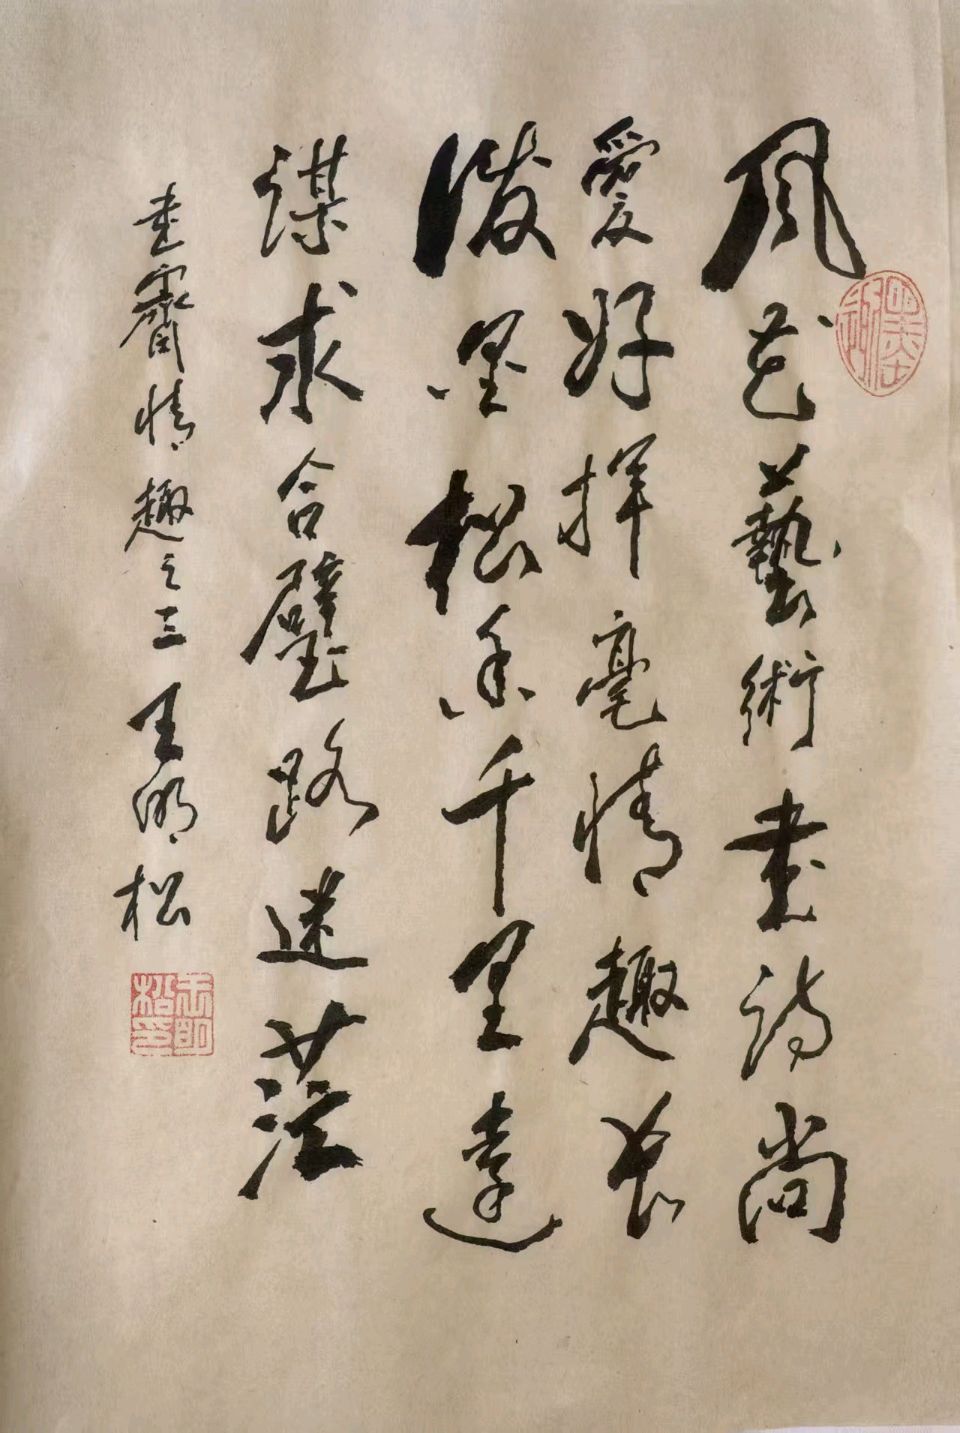 風花藝術書詩尚
愛好揮毫情趣長
潑墨松香千里達
謀求合璧路迷茫
書齋情趣之三 王明松
王明松印